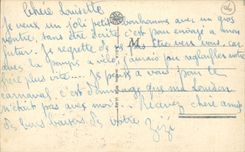 Chère Louisette
Je veux un joli petit bonhomme avec un gros
ventre, sans être c'est pas engagé a mon
Je regrette de pas être vers vous, car
avec la pompe a vélo j'aurais pu regonfler votre
plus vite... Je pense a vous pour le
carnaval, c'est dommage que ma Louison
n'était pas avec moi... Recevez chers amis
de bons baisers de votre
Zizi